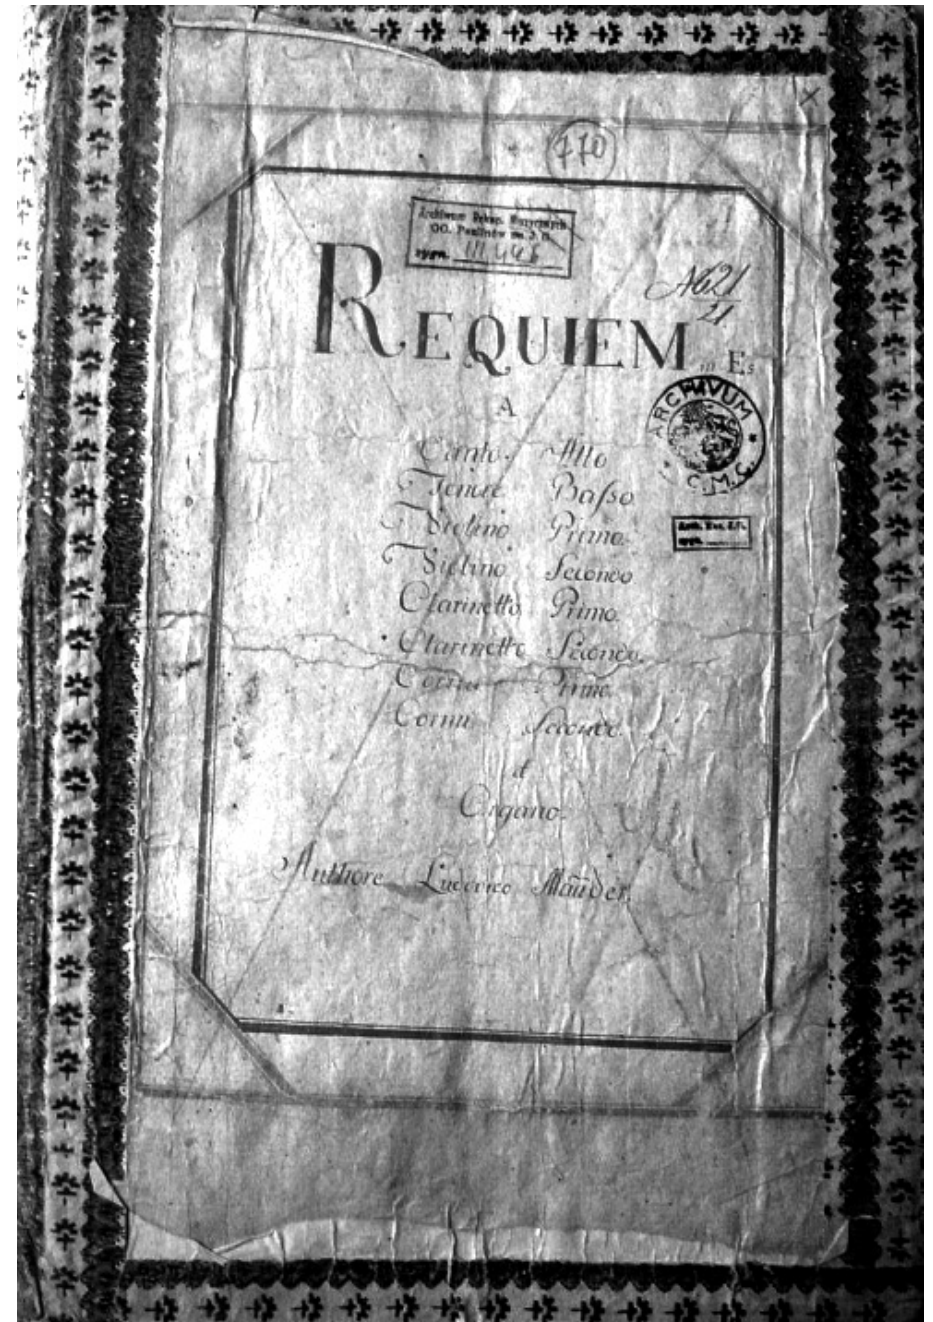 770
Archiwum Rękop. Muzycznych
OO. Paulinów na J. G.
sygn. III.
A621
21
REQUIEM in Es
ARCHIVUM
C.M.C.
A
Canto. Alto
Tenore Basso
Violino Primo.
Violino Secondo
Clarinetto Primo.
Clarinetto Secondo.
Cornu Primo.
Cornu Secondo.
et
Organo.
Authore Ludovico Maũder.